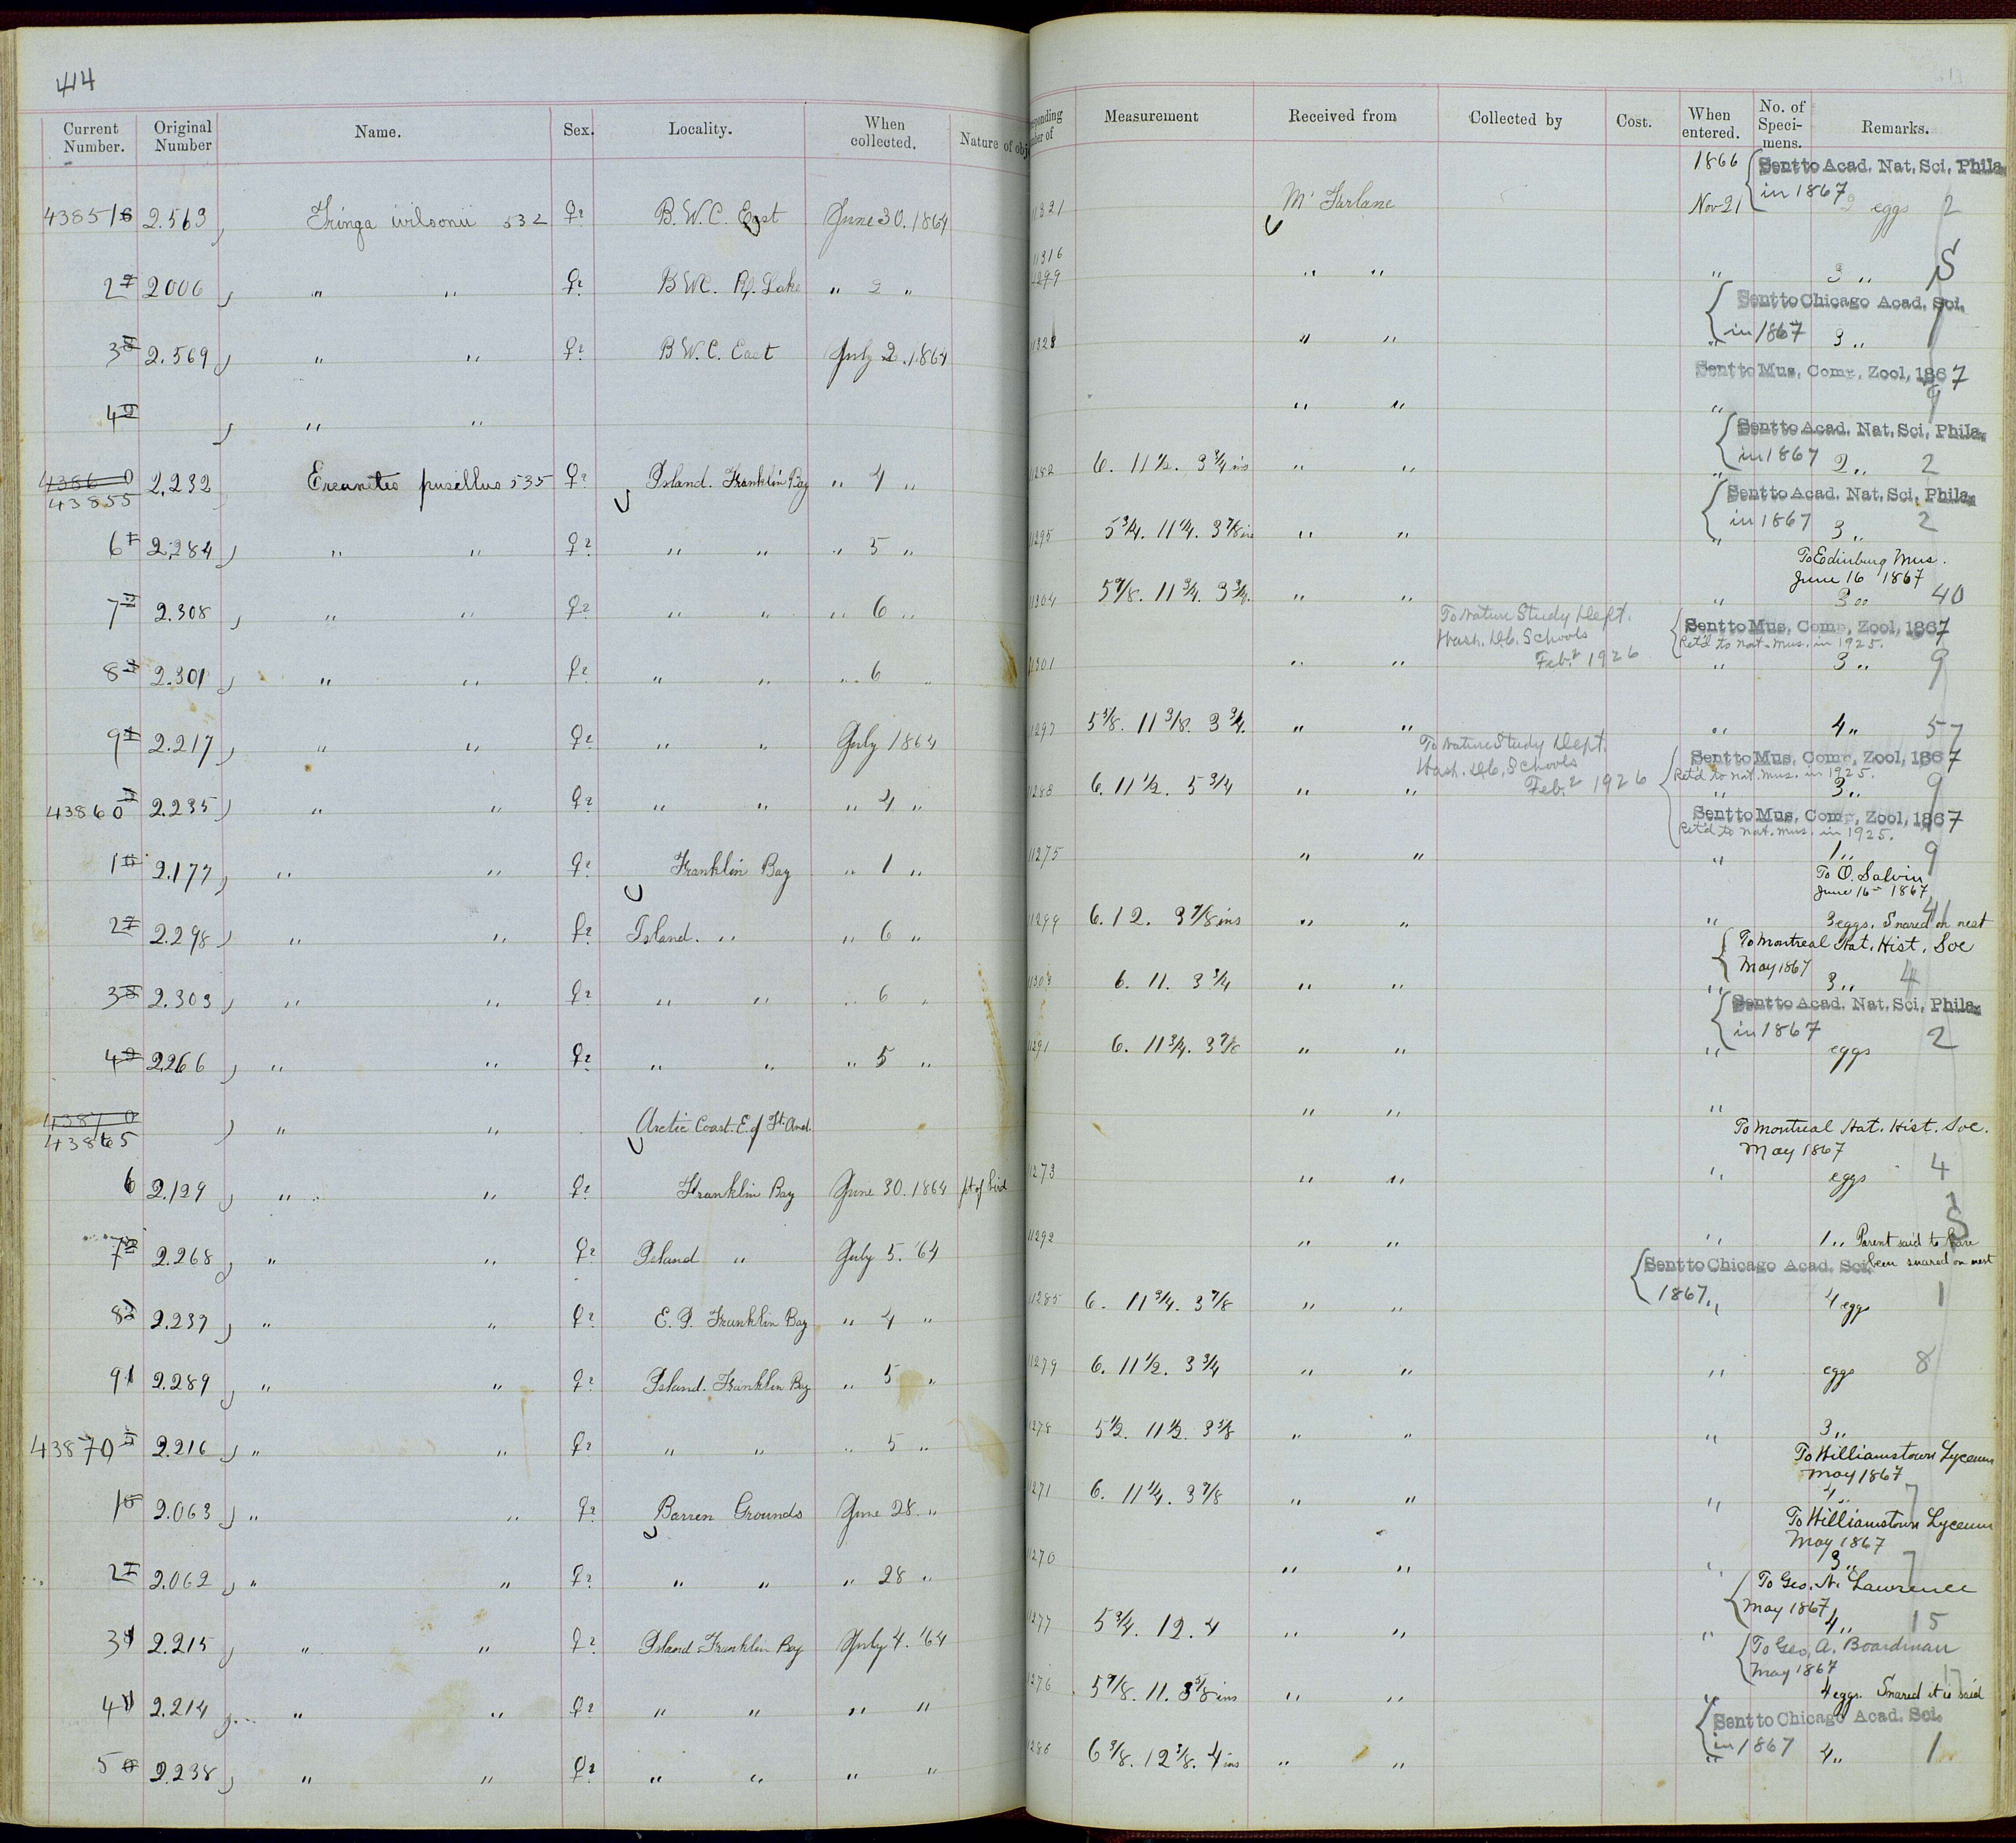 414
Current Number. Original Number Name. Sex. Locality. When collected. Nature of obj
ponding ber of Measurement Received from Collected by Cost. When entered. No. of Speci-mens. Remarks.
1866 Sent to Acad. Nat. Sci. Phila.
in 1867
43851 2.563 Tringa wilsonii 532 ♀? B.W.C. East June 30. 1864 11321 McFarlane Nov 21 2 eggs 2
11316
2 2006 " " ♀? B.W.C. Rf. Lake " 2 " 1299 " " " 3 " S
Sent to Chicago Acad. Sci.
in 1867
3 2.569 " " ♀? B.W.C. East July 2. 1864 11323 " " " 3 " 1
Sent to Mus. Comp. Zool, 1867
4 " " " " " 9
Sent to Acad. Nat. Sci. Phila.
in 1867
4386 0
43855 2.232 Ereunetes pusillus 535 ♀? Island. Franklin Bay " 4 " 1282 6. 11 1/2. 3 3/4 ins " " " 2 " 2
Sent to Acad. Nat. Sci. Phila.
in 1867
6 2.284 " " ♀? " " " 5 " 1295 5 3/4. 11 1/4. 3 7/8 ins " " " 3 " 2
To Edinburg Mus.
June 16 1867
7 2.308 " " ♀? " " " 6 " 11304 5 7/8. 11 3/4. 3 3/4. " " " 3 " 40
To Nature Study Dept.
Wash. D.C. Schools
Feb. 2 1926
Sent to Mus. Comp. Zool, 1867
Ret'd to Nat. Mus. in 1925.
8 2.301 " " ♀? " " " 6 " 11301 " " " 3 " 9
9 2.217 " " ♀? " " July 1864 1297 5 5/8. 11 3/8. 3 3/4. " " " 4 " 57
To Nature Study Dept.
Wash. D.C. Schools
Feb. 2 1926
Sent to Mus. Comp. Zool, 1867
Ret'd to Nat. Mus. in 1925.
43860 2.235 " " ♀? " " " 4 " 1283 6. 11 1/2. 5 3/4 " " " 3 " 9
Sent to Mus. Comp. Zool, 1867
Ret'd to Nat. Mus. in 1925.
1 2.177 " " ♀? Franklin Bay " 1 " 11275 " " " 1 " 9
To O. Salvin
June 16 1867
2 2.298 " " ♀? Island. " " 6 " 11299 6. 12. 3 7/8 ins " " " 3 eggs. Snared on nest 41
To Montreal Nat. Hist. Soc
May 1867
3 2.303 " " ♀? " " " 6 " 1303 6. 11. 3 3/4 " " " 3 " 4
Sent to Acad. Nat. Sci. Phila.
in 1867
4 2266 " " ♀? " " " 5 " 1291 6. 11 3/4. 3 7/8 " " " eggs 2
4387 0
43865 " " Arctic Coast. E. of Ft. And. " " "
To Montreal Nat. Hist. Soc.
May 1867
6 2.129 " " ♀? Franklin Bay June 30. 1864 pt of bird 1273 " " " eggs 4
7 2.268 " " ♀? Island " July 5. '64 11292 " " " 1 " Parent said to have
been snared on nest
S
Sent to Chicago Acad. Sci.
1867
8 2.239 " " ♀? E. I. Franklin Bay " 4 " 11285 6. 11 3/4. 3 7/8 " " " 4 eggs 1
9 2.289 " " ♀? Island. Franklin Bay " 5 " 11279 6. 11 1/2. 3 3/4 " " " eggs 8
43870 2.216 " " ♀? " " " 5 " 1278 5 1/2. 11 1/2. 3 3/8 " " " 3 "
To Williamstown Lyceum
May 1867
1 2.063 " " ♀? Barren Grounds June 28. " 1271 6. 11 1/4. 3 7/8 " " " 4 " 7
To Williamstown Lyceum
May 1867
2 2.062 " " ♀? " " " 28 " 1270 " " " 3 " 7
To Geo. N. Lawrence
May 1867
3 2.215 " " ♀? Island Franklin Bay July 4. '64 1277 5 3/4. 12. 4 " " " 4 " 15
To Geo. A. Boardman
May 1867
4 2.214 " " ♀? " " " " 1276 5 7/8. 11. 3 5/8 ins " " " 4 eggs. Snared it is said 17
Sent to Chicago Acad. Sci.
in 1867
5 2.238 " " ♀? " " " " 1286 6 3/8. 12 3/8. 4 ins " " " 4 " 1